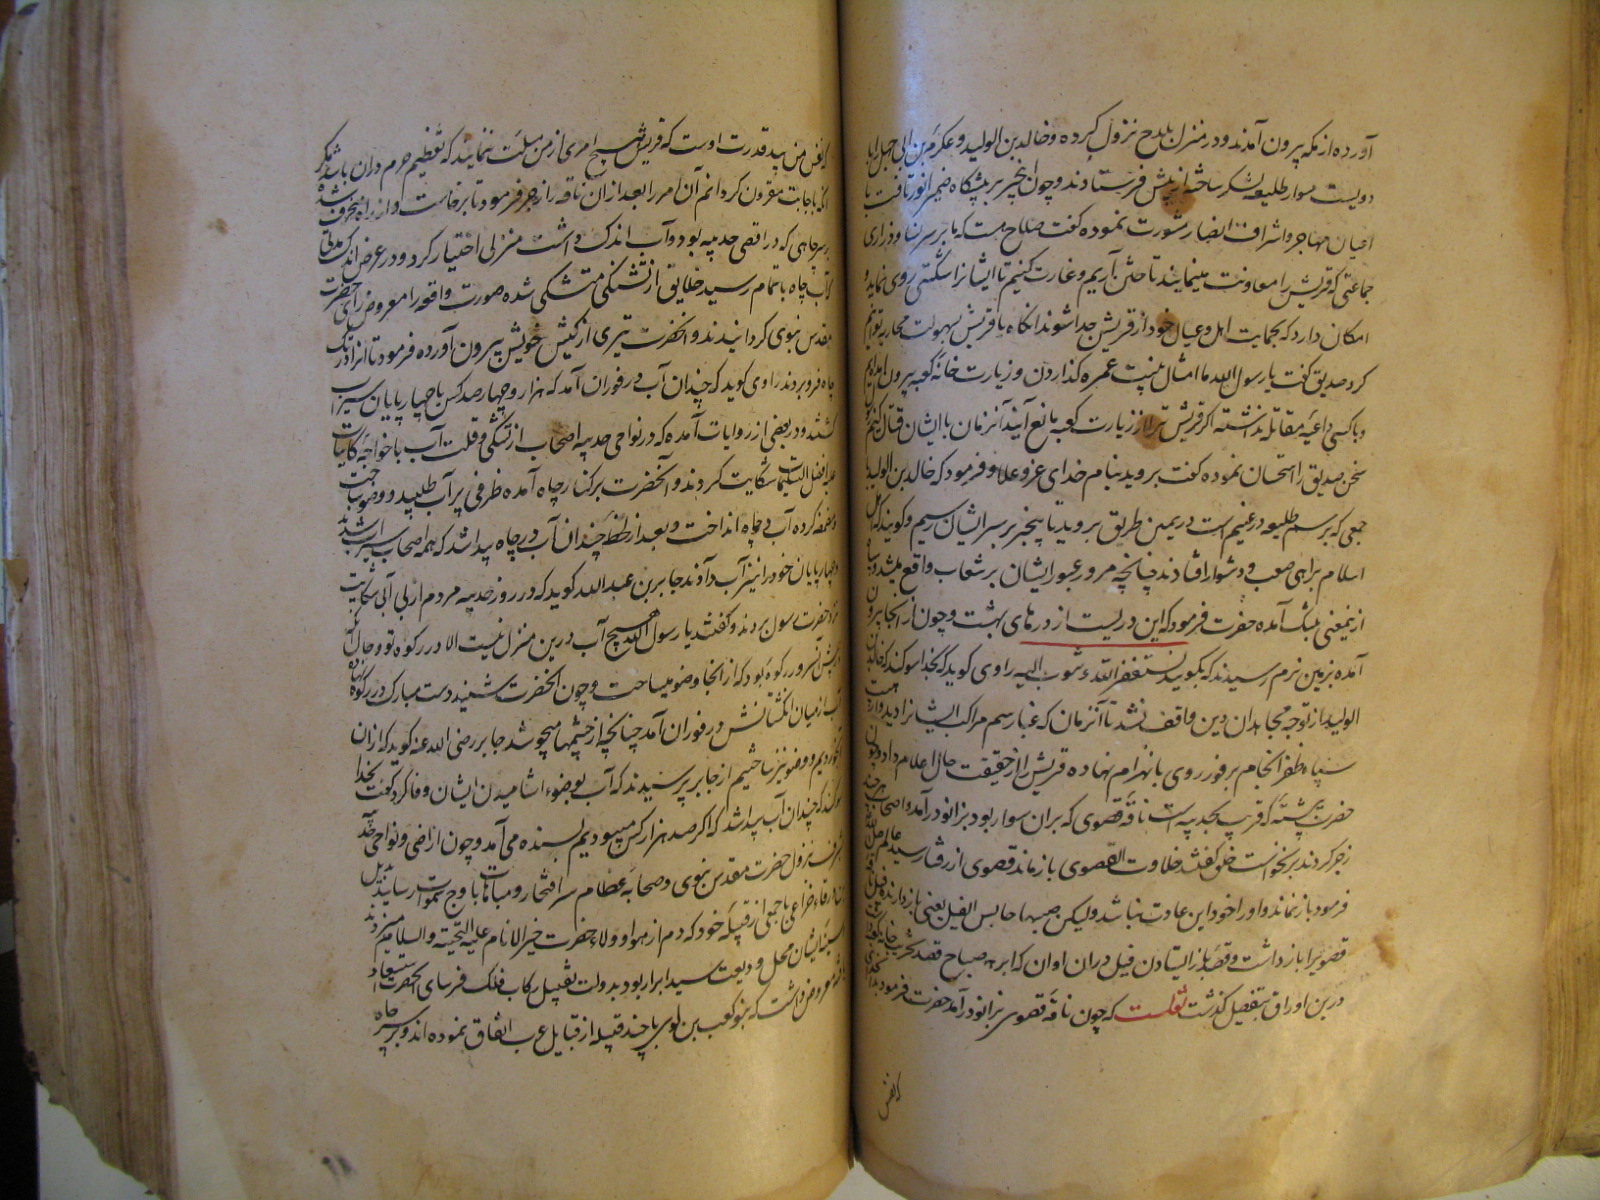 آورده از مکه بیرون آمدند و در منزل بلدح نزول کرده و خالد بن الولید و عکرمة بن ابی جهل را با
دویست سوار طلیعه لشکر ساخته از پیش فرستادند و چون این خبر بر پیشگاه ضمیر انور تافت با
اعیان مهاجر و اشراف انصار مشورت نموده گفت صلاح هست که ما بر سر نسا و ذراری
جماعتی که قریش را معاونت مینمایند تاختن آریم و غارت کنیم تا ایشانرا شکستی روی نماید و
امکان دارد که بحمایت اهل و عیال خود از قریش جدا شوند انگاه با قریش بسهولت محاربه توانیم
کرد صدیق گفت یا رسول الله ما امثال بنیت عمره گذاردن و زیارت خانه کعبه بیرون آمده ایم
و با کسی داعیه مقاتله نداشته اگر قریش ترا از زیارت کعبه مانع آیند آنزمان با ایشان قتال کنیم
سخن صدیق را استحسان نموده گفت بروید بنام خدای عز و علا و فرمود که خالد بن الولید با
جمعی که برسم طلیعه در غنیم است در یمین طریق بروید تا بیخبر بر سر ایشان رسیم و گویند که اهل
اسلام براهی صعب و دشوار افتادند چنانچه مرور و عبور ایشان بر شعاب واقع میشد و
ازینمعنی بتنگ آمده حضرت فرمود که این دریست از درهای بهشت و چون از آنجا بیرون
آمده بزمین نرم رسیدند که بگویید نستغفر الله و نتوب الیه راوی گوید که بخدا سوگند که خالد بن
الولید از توجه مجاهدان دین واقف نشد تا آنزمان که غبار سم مراکب ایشانرا دید و از
سپاه ظفر انجام بر فور روی بانهزام نهاده قریش را از حقیقت حال اعلام داد و چون
حضرت به پشته که قریب بحدیبیه است ناقه قصوی که بران سوار بود بزانو درآمد و اصحاب هر چند
زجر کردند برنخواست خلق گفتند خلاوت القصوی باز ماند قصوی از رفتار سید عالم صلی
فرمود باز نماند و او را خود این عادت نباشد ولیکن حبسها حابس الفیل یعنی بازدارنده فیل
قصویرا باز داشت و قصه باز ایستادن فیل دران اوان که ابرهه صباح قصد تخریب خانه کعبه
درین اوراق بتفصیل گذشت نقلست که چون ناقه قصوی بزانو درآمد حضرت فرمود بدان خدای
که نفس
که نفس من بید قدرت اوست که قریش هیچ امری از من مسلت ننمایند که تعظیم حرم دران باشد مگر
انکه باجابت مقرون گردانم آن امر را بعد ازان ناقه را زجر فرمود تا برخاست و از راه منحرف شده
بر سر چاهی که در اقصی حدیبیه بود و آب اندک داشت منزلی اختیار کرد و در عرض اندک مدتی
آب چاه باتمام رسید خلایق از تشنگی متشکی شده صورت واقعه را معروض رای حضرت
مقدس نبوی گردانیدند و انحضرت تیری از کیش خویش بیرون آورده فرمود تا انرا در تک
چاه فرو بردند راوی گوید که چندان آب در فوران آمد که هزار و چهار صد کس با چهارپایان سیراب
گشتند و در بعضی از روایات آمده که در نواحی حدیبیه اصحاب از تشنگی و قلت آب با خواجه کاینات
علیه افضل التسلیمات شکایت کردند و آنحضرت بر کنار چاه آمده ظرفی پر آب طلبید و وضو ساخت
و مضمضه کرده آب در چاه انداخت و بعد از لحظه چندان آب در چاه پیدا شد که همه اصحاب سیراب شدند
و چهارپایان خود را نیز آب دادند جابر بن عبد الله گوید که در روز حدیبیه مردم از بی آبی شکایت
نزد حضرت رسول بردند و گفتند یا رسول الله هیچ آب درین منزل نیست الا در رکوه تو و حال
پیش آنسرور رکوه بود که از انجا وضو میساخت و چون انحضرت شنید دست مبارک در رکوه نهاد
آب از میان انگشتانش در فوران آمد چنانچه از چشمها میجوشد جابر رضی الله عنه گوید که ازان
آب خوردیم و وضو نیز ساختیم از جابر پرسیدند که آب بوضو و اشامیدن ایشان وفا کرد گفت بخدا
سوگند که چندان آب پیدا شد که اگر صد هزار کس میبودیم بسنده می آمد و چون اراضی و نواحی حدیبیه
بشرف نزول حضرت مقدس نبوی و صحابه عظام سر افتخار و مباهات باوج سموات رسانید بدیل
بن ورقاء خزاعی با جمعی از قبیله خود که دم از هوا و ولاء حضرت خیر الانام علیه التحیته و السلام میزدند
سینه ایشان محل ودیعت سید ابرار بود بدولت تقبیل رکاب فلک فرسای انحضرت استسعاد
یافته معروض داشت که بنو کعب بن لوی با چند قبیله از قبایل عرب اتفاق نموده اند و بر سر چاه